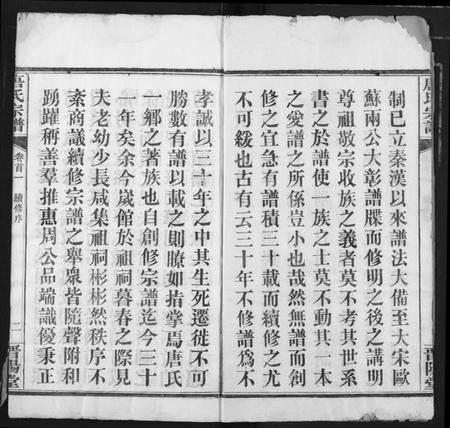 制已立秦漢以來譜法大備至大宋歐
蘇兩公大彰譜牒而修明之後之講明
尊祖敬宗收族之義者莫不考其世系
書之於譜使一族之士莫不動其一本
之愛譜之所係豈小也哉然無譜而創
修之宜急有譜積三十載而續修之尤
不可緩也古有云三十年不修譜爲不
孝誠以三十年之中其生死遷徙不可
勝數有譜以載之則瞭如指掌焉唐氏
一鄉之著族也自創修宗譜迄今三十
一年矣余今歲館於祖祠暮春之際見
夫老幼少長咸集祖祠彬彬然秩序不
紊商議續修宗譜之舉衆皆隨聲附和
踴躍稱善羣推惠周公品端識優秉正
唐氏宗譜
卷首一
續修序
二
晋陽堂
唐氏宗譜
晋陽堂